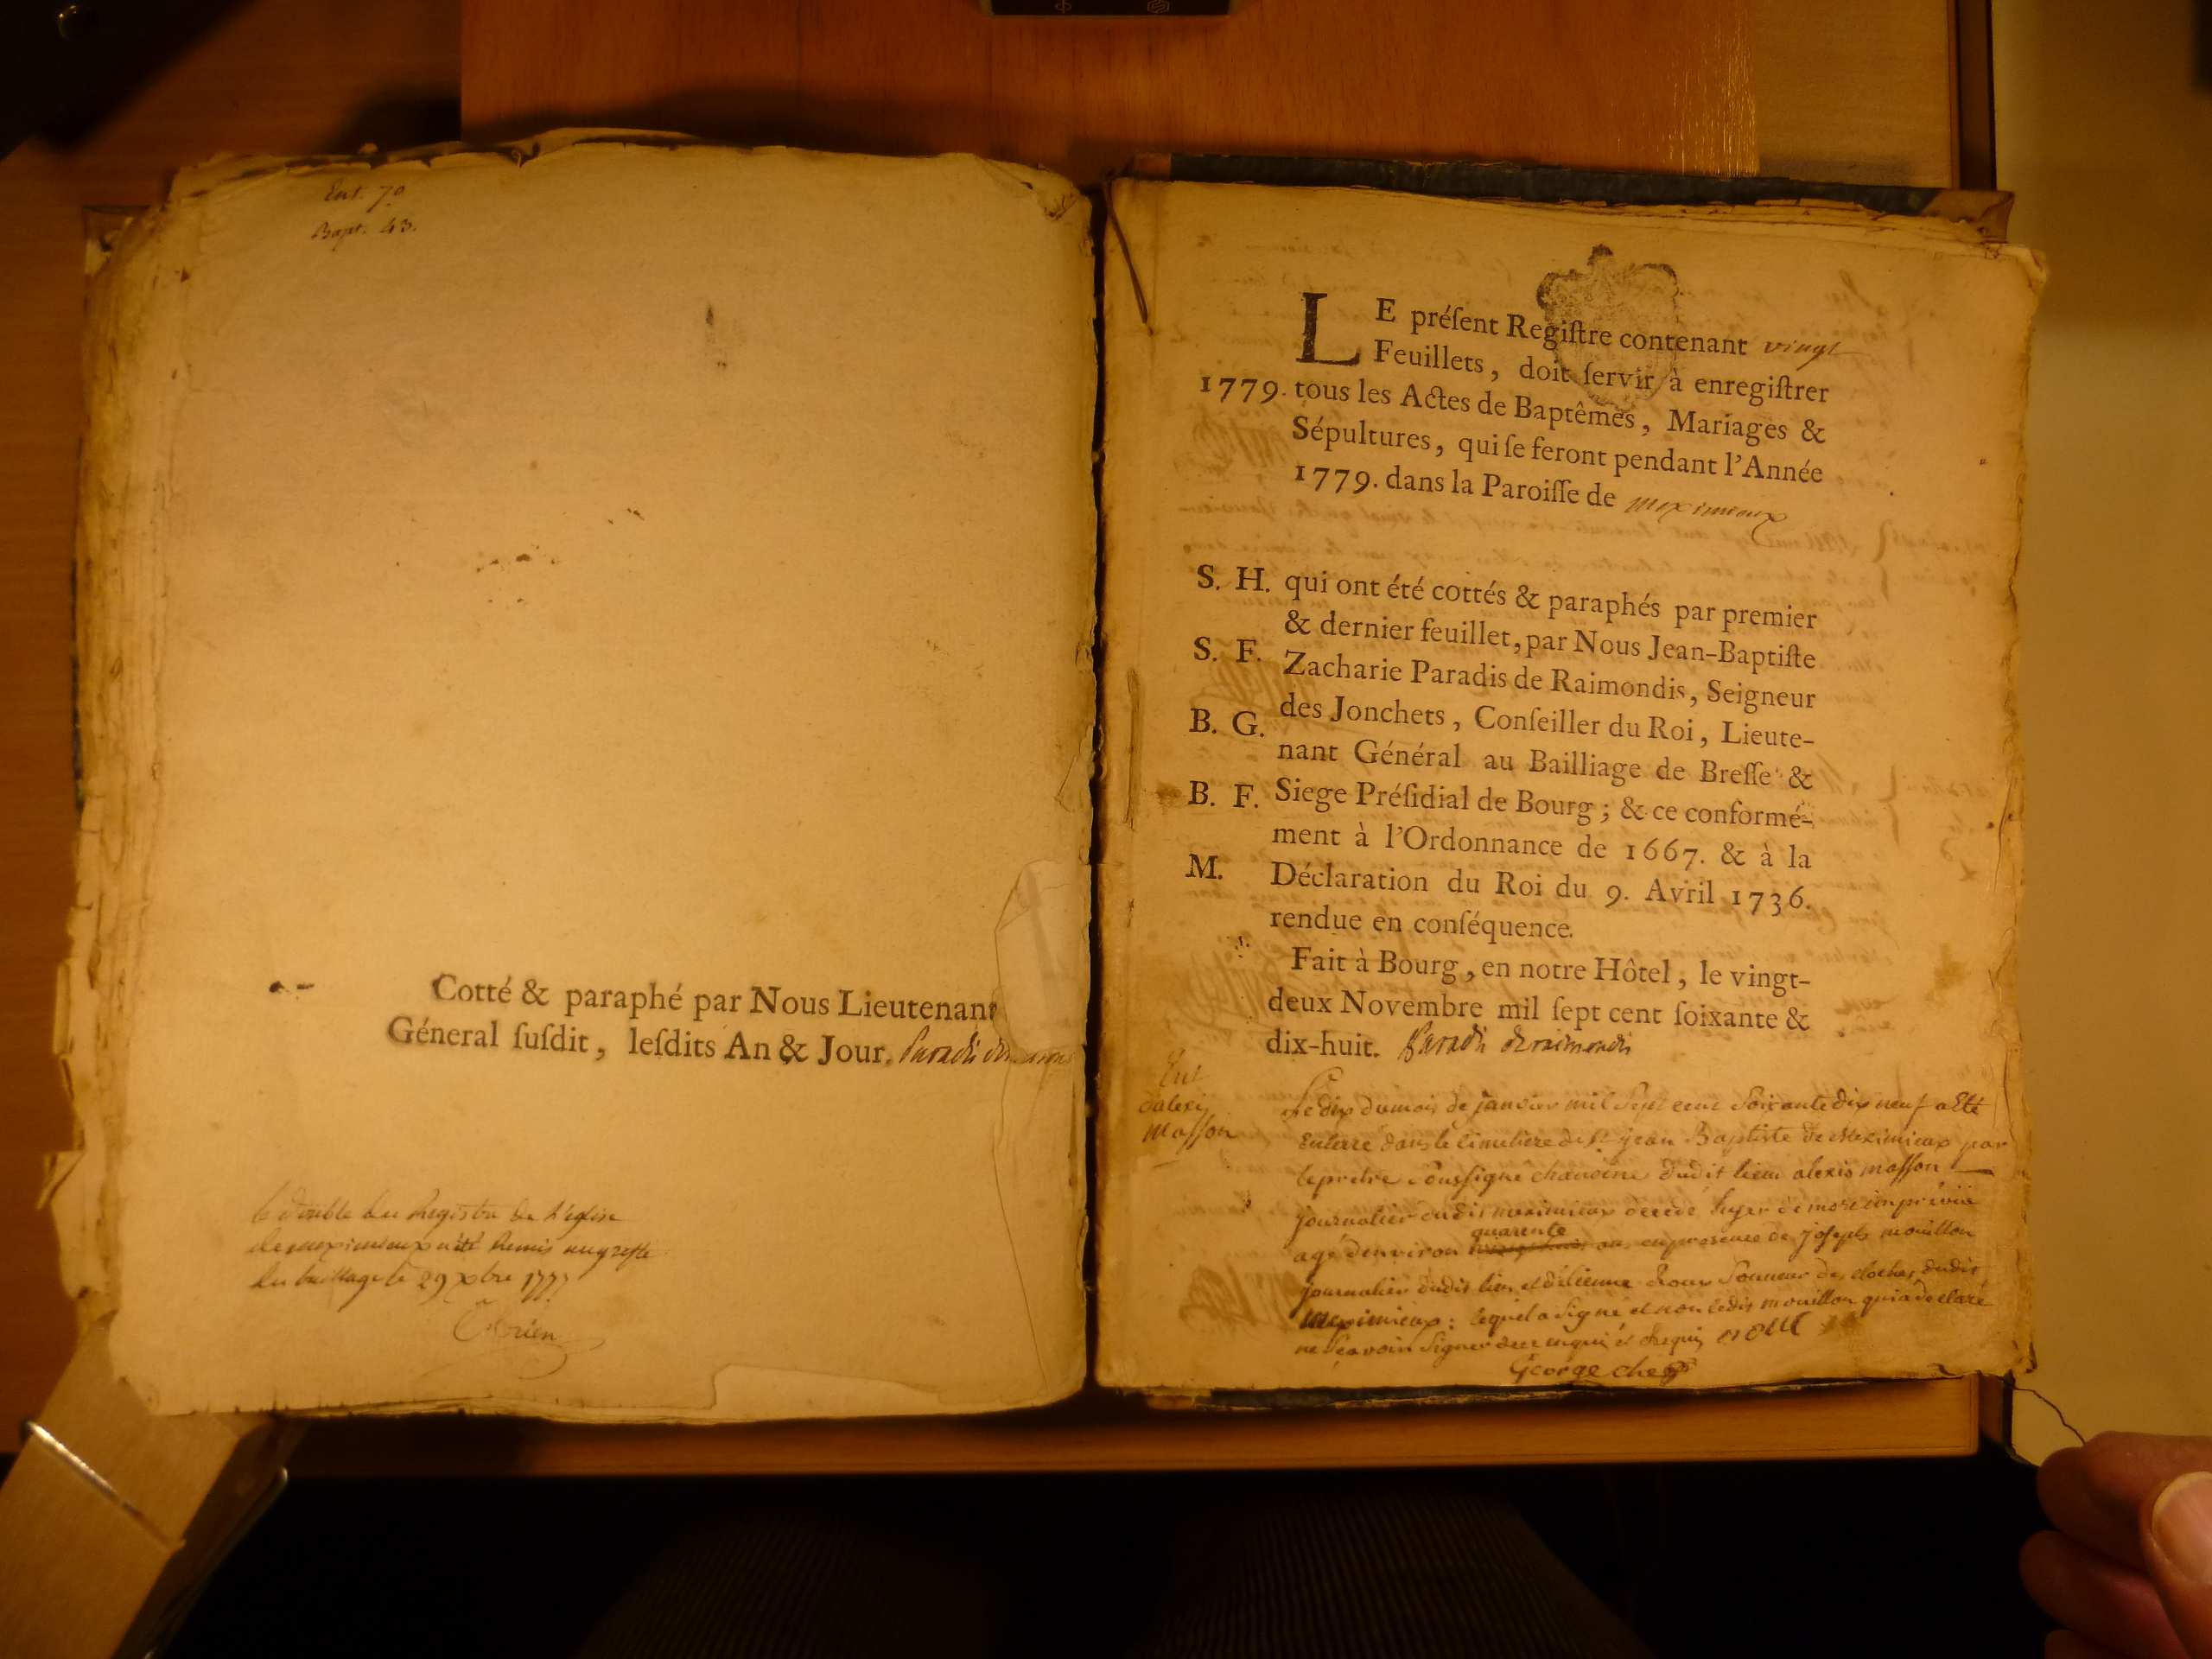 Ent. 70
Bapt. 43.
Cotté & paraphé par Nous Lieutenant
Géneral ſuſdit, leſdits An & Jour. Paradis de
le double du Registre de l'eglise
de meximieux a été Remis au greffe
du bailliage le 29 xbre 177
LE préſent Regiſtre contenant vingt
Feuillets, doit ſervir à enregiſtrer
1779. tous les Actes de Baptêmes, Mariages &
Sépultures, qui ſe feront pendant l'Année
1779. dans la Paroiſſe de meximieux
S. H. qui ont été cottés & paraphés par premier
& dernier feuillet, par Nous Jean-Baptiſte
S. F. Zacharie Paradis de Raimondis, Seigneur
des Jonchets, Conſeiller du Roi, Lieute-
B. G. nant Général au Bailliage de Breſſe &
B. F. Siege Préſidial de Bourg; & ce conformé-
ment à l'Ordonnance de 1667. & à la
M. Déclaration du Roi du 9. Avril 1736.
rendue en conſéquence.
Fait à Bourg, en notre Hôtel, le vingt-
deux Novembre mil ſept cent ſoixante &
dix-huit. Paradis de raimondis
Ent
d'alexis
masson
Le dix du mois de janvier mil Sept cent Soixante dix neuf a Eté
Enterré dans le cimetiere de St jean Baptiste de Meximieux par
le pretre Soussigné chanoine dudit lieu alexis masson
journalier dudit meximieux decedé hyer de mort imprévüe
agé d'environ quarente ans, en presence de joseph mouillon
journalier dudit lieu et d'etienne Roux Sonneur des cloches dudit
Meximieux: lequel a Signé et non ledit mouillon qui a declaré
ne Scavoir Signer de ce enquis et Requis
George che